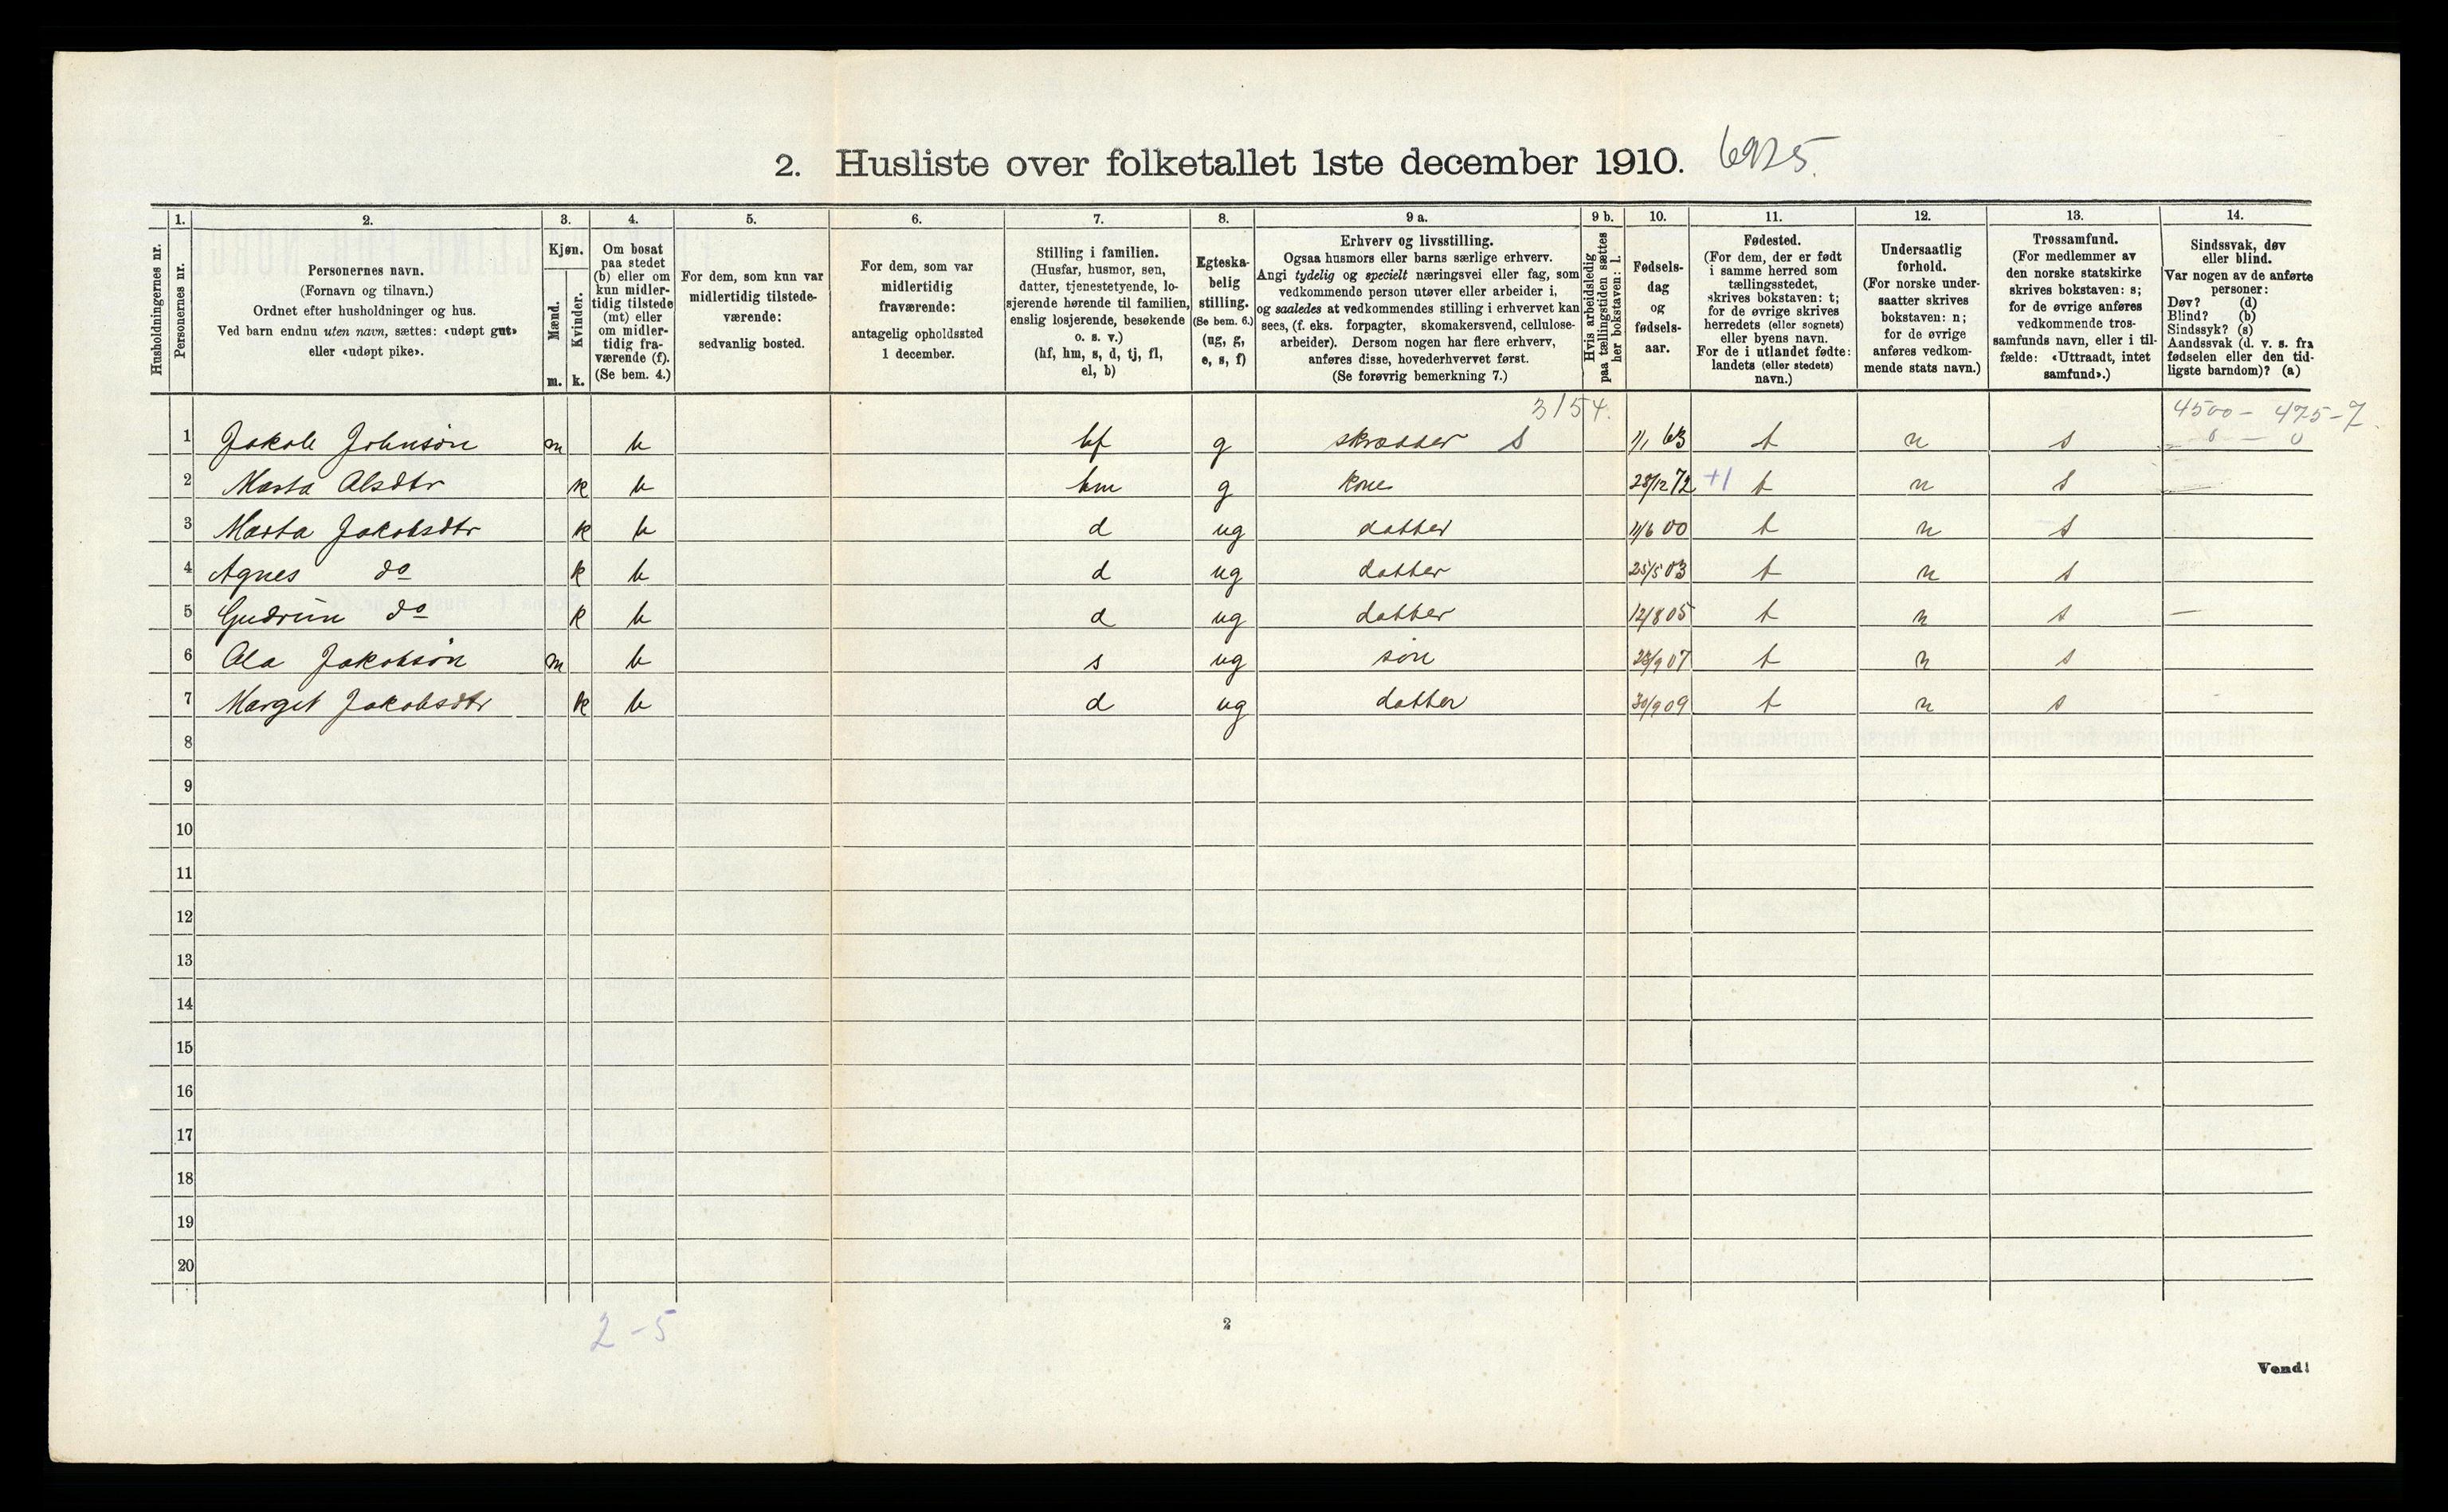 2. Husliste over folketallet 1ste december 1910. 6925.
Husholdningernes nr.
1. Personernes nr.
2. Personernes navn. (Fornavn og tilnavn.) Ordnet efter husholdninger og hus. Ved barn endnu uten navn, sættes: «udøpt gut» eller «udøpt pike».
3. Kjøn. Mænd. m. Kvinder. k.
4. Om bosat paa stedet (b) eller om kun midlertidig tilstede (mt) eller om midlertidig fraværende (f). (Se bem. 4.)
5. For dem, som kun var midlertidig tilstedeværende: sedvanlig bosted.
6. For dem, som var midlertidig fraværende: antagelig opholdssted 1 december.
7. Stilling i familien. (Husfar, husmor, søn, datter, tjenestetyende, losjerende hørende til familien, enslig losjerende, besøkende o. s. v.) (hf, hm, s, d, tj, fl, el, b)
8. Egteskabelig stilling. (Se bem. 6.) (ug, g, e, s, f)
9 a. Erhverv og livsstilling. Ogsaa husmors eller barns særlige erhverv. Angi tydelig og specielt næringsvei eller fag, som vedkommende person utøver eller arbeider i, og saaledes at vedkommendes stilling i erhvervet kan sees, (f. eks. forpagter, skomakersvend, cellulosearbeider). Dersom nogen har flere erhverv, anføres disse, hovederhvervet først. (Se forøvrig bemerkning 7.)
9 b. Hvis arbeidsledig paa tællingstiden sættes her bokstaven: l.
10. Fødselsdag og fødselsaar.
11. Fødested. (For dem, der er født i samme herred som tællingsstedet, skrives bokstaven: t; for de øvrige skrives herredets (eller sognets) eller byens navn. For de i utlandet fødte: landets (eller stedets) navn.)
12. Undersaatlig forhold. (For norske undersaatter skrives bokstaven: n; for de øvrige anføres vedkommende stats navn.)
13. Trossamfund. (For medlemmer av den norske statskirke skrives bokstaven: s; for de øvrige anføres vedkommende trossamfunds navn, eller i tilfælde: «Uttraadt, intet samfund».)
14. Sindssvak, døv eller blind. Var nogen av de anførte personer: Døv? (d) Blind? (b) Sindssyk? (s) Aandssvak (d. v. s. fra fødselen eller den tidligste barndom)? (a)
3154. 4500 - 475 - 7.
1 Jakob Johnsøn m b hf g skrædder S 1/1 63 t n s 0 - 0
2 Marta Olsdtr k b hm g kone 28/12 72 +1 t n s
3 Marta Jakobsdtr k b d ug datter 11/6 00 t n s
4 Agnes do k b d ug datter 25/5 03 t n s
5 Gudrun do k b d ug datter 12/8 05 t n s —
6 Ola Jakobsøn m b s ug søn 28/9 07 t n s
7 Marget Jakobsdtr k b d ug datter 30/9 09 t n s
8
9
10
11
12
13
14
15
16
17
18
19
20
2 - 5
2
Vend!